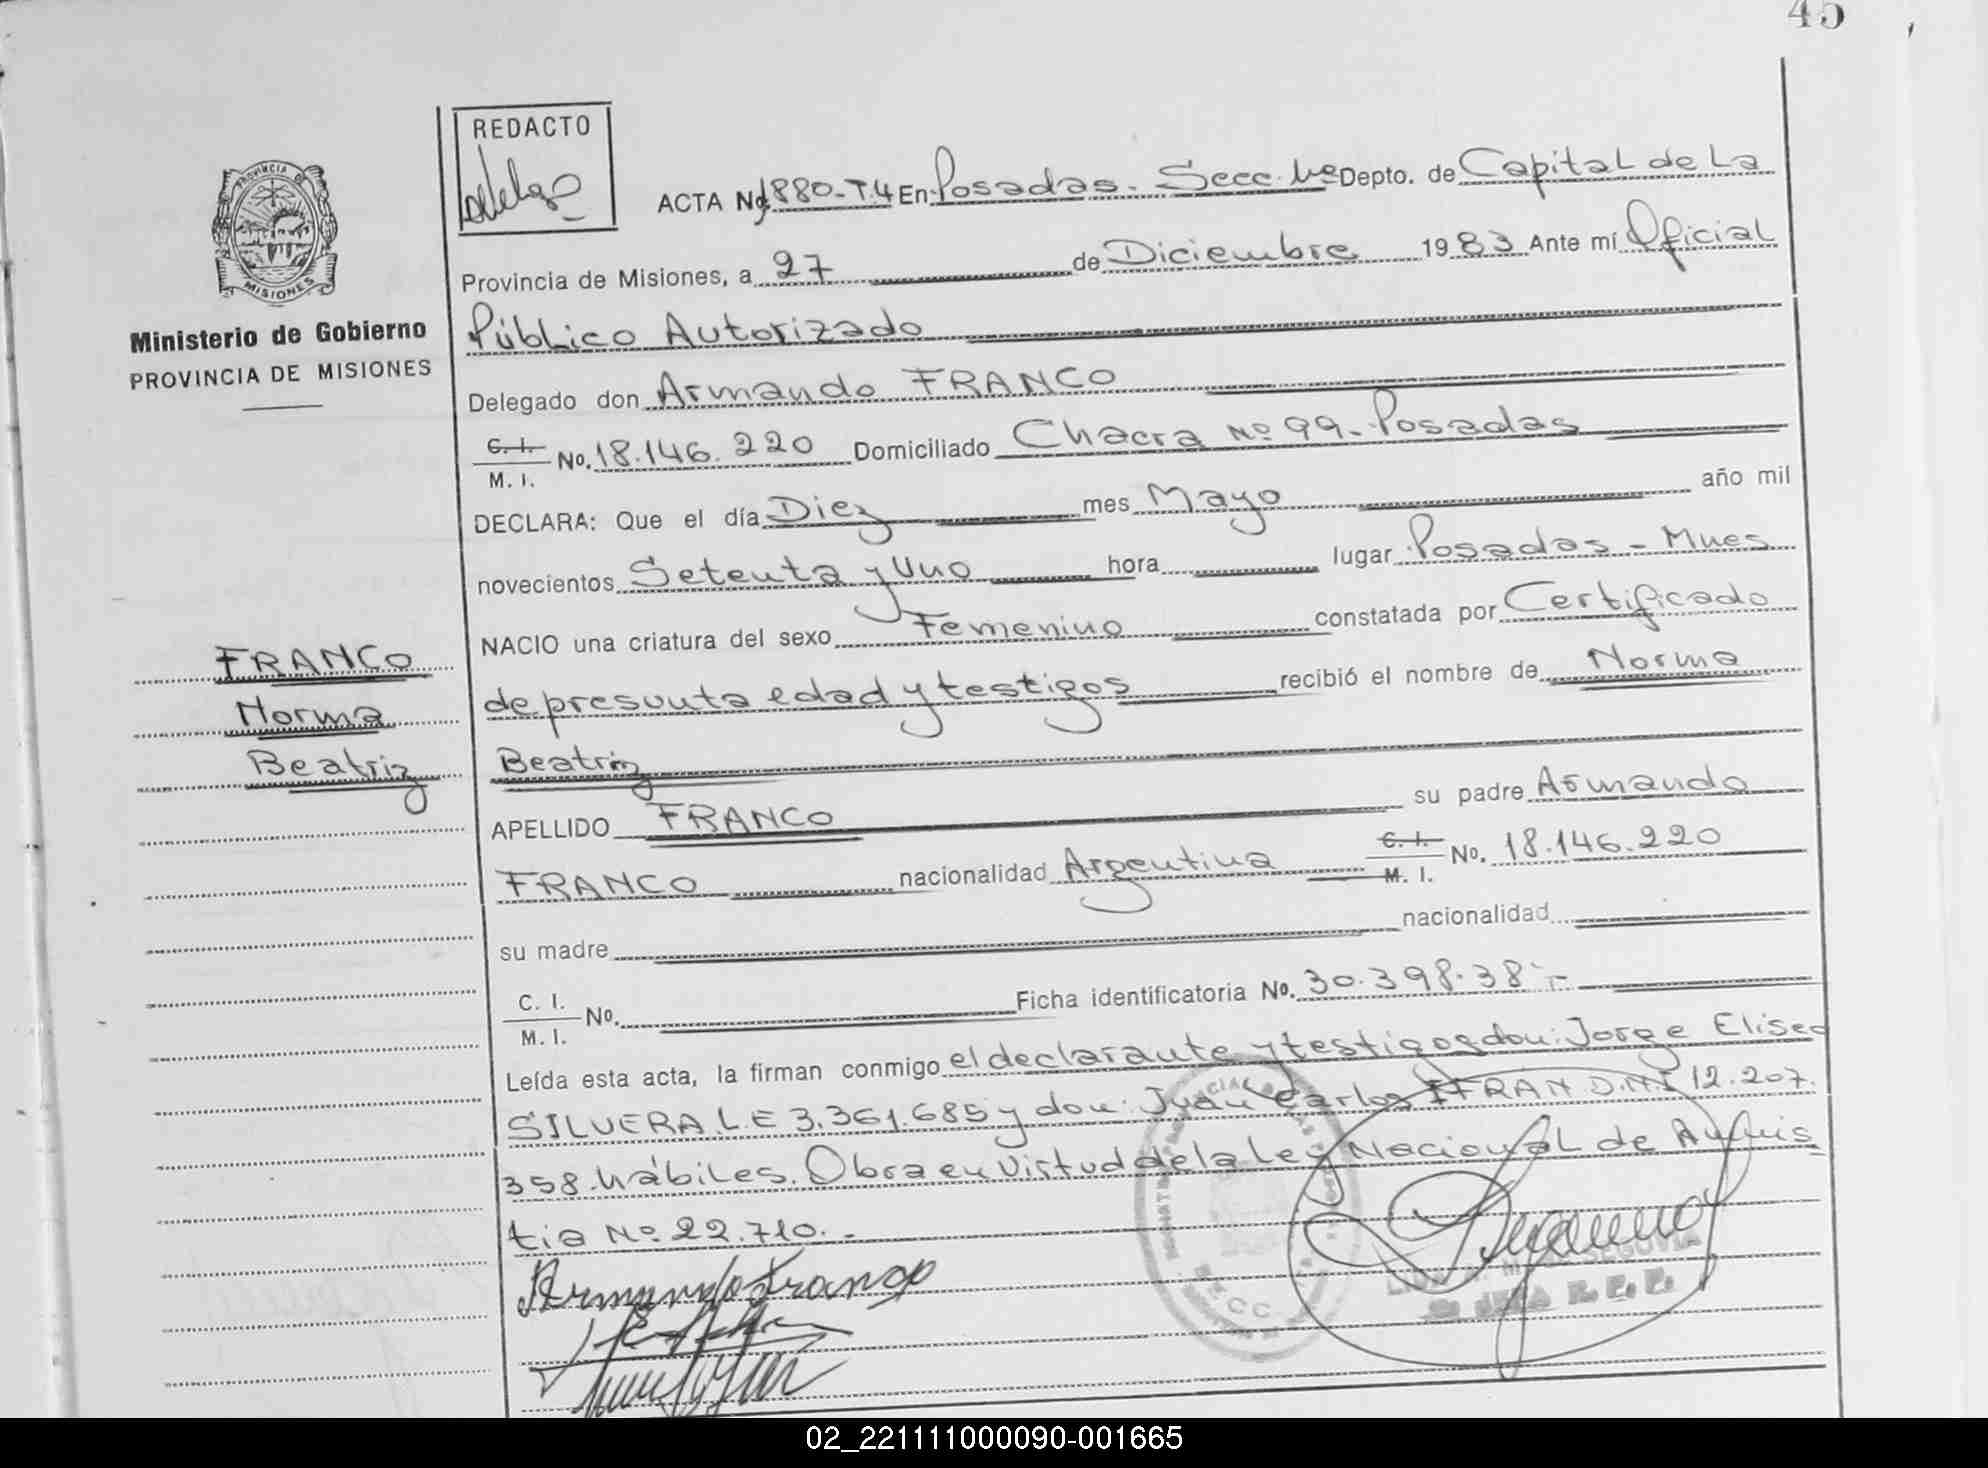 45
REDACTO
PROVINCIA DE
MISIONES
Ministerio de Gobierno
PROVINCIA DE MISIONES
ACTA Nº 1880-T.4 En Posadas. Secc. 1ra Depto. de Capital de La
Provincia de Misiones, a 27 de Diciembre 1983 Ante mí Oficial
Público Autorizado
Delegado don Armando FRANCO
C. I. M. I. No. 18.146.220 Domiciliado Chacra Nº 99-Posadas
DECLARA: Que el día Diez mes Mayo año mil
novecientos Setenta y Uno hora lugar Posadas - Mnes
NACIO una criatura del sexo Femenino constatada por Certificado
de presunta edad y testigos recibió el nombre de Norma
Beatriz
APELLIDO FRANCO su padre Armando
FRANCO nacionalidad Argentina C. I. M. I. No. 18.146.220
su madre nacionalidad
C. I. M. I. No. Ficha identificatoria No. 30.398.38
Leída esta acta, la firman conmigo el declarante y testigos don: Jorge Eliseo
SILVERA L.E 3.361.685 y don: Juan Carlos IFRAN D.N.I 12.207.
358. hábiles. Obra en Virtud de la Ley Nacional de Amnis
tia Nº 22.710.-
Armando Franco
FRANCO
Norma
Beatriz
SEGOVIA
02_221111000090-001665